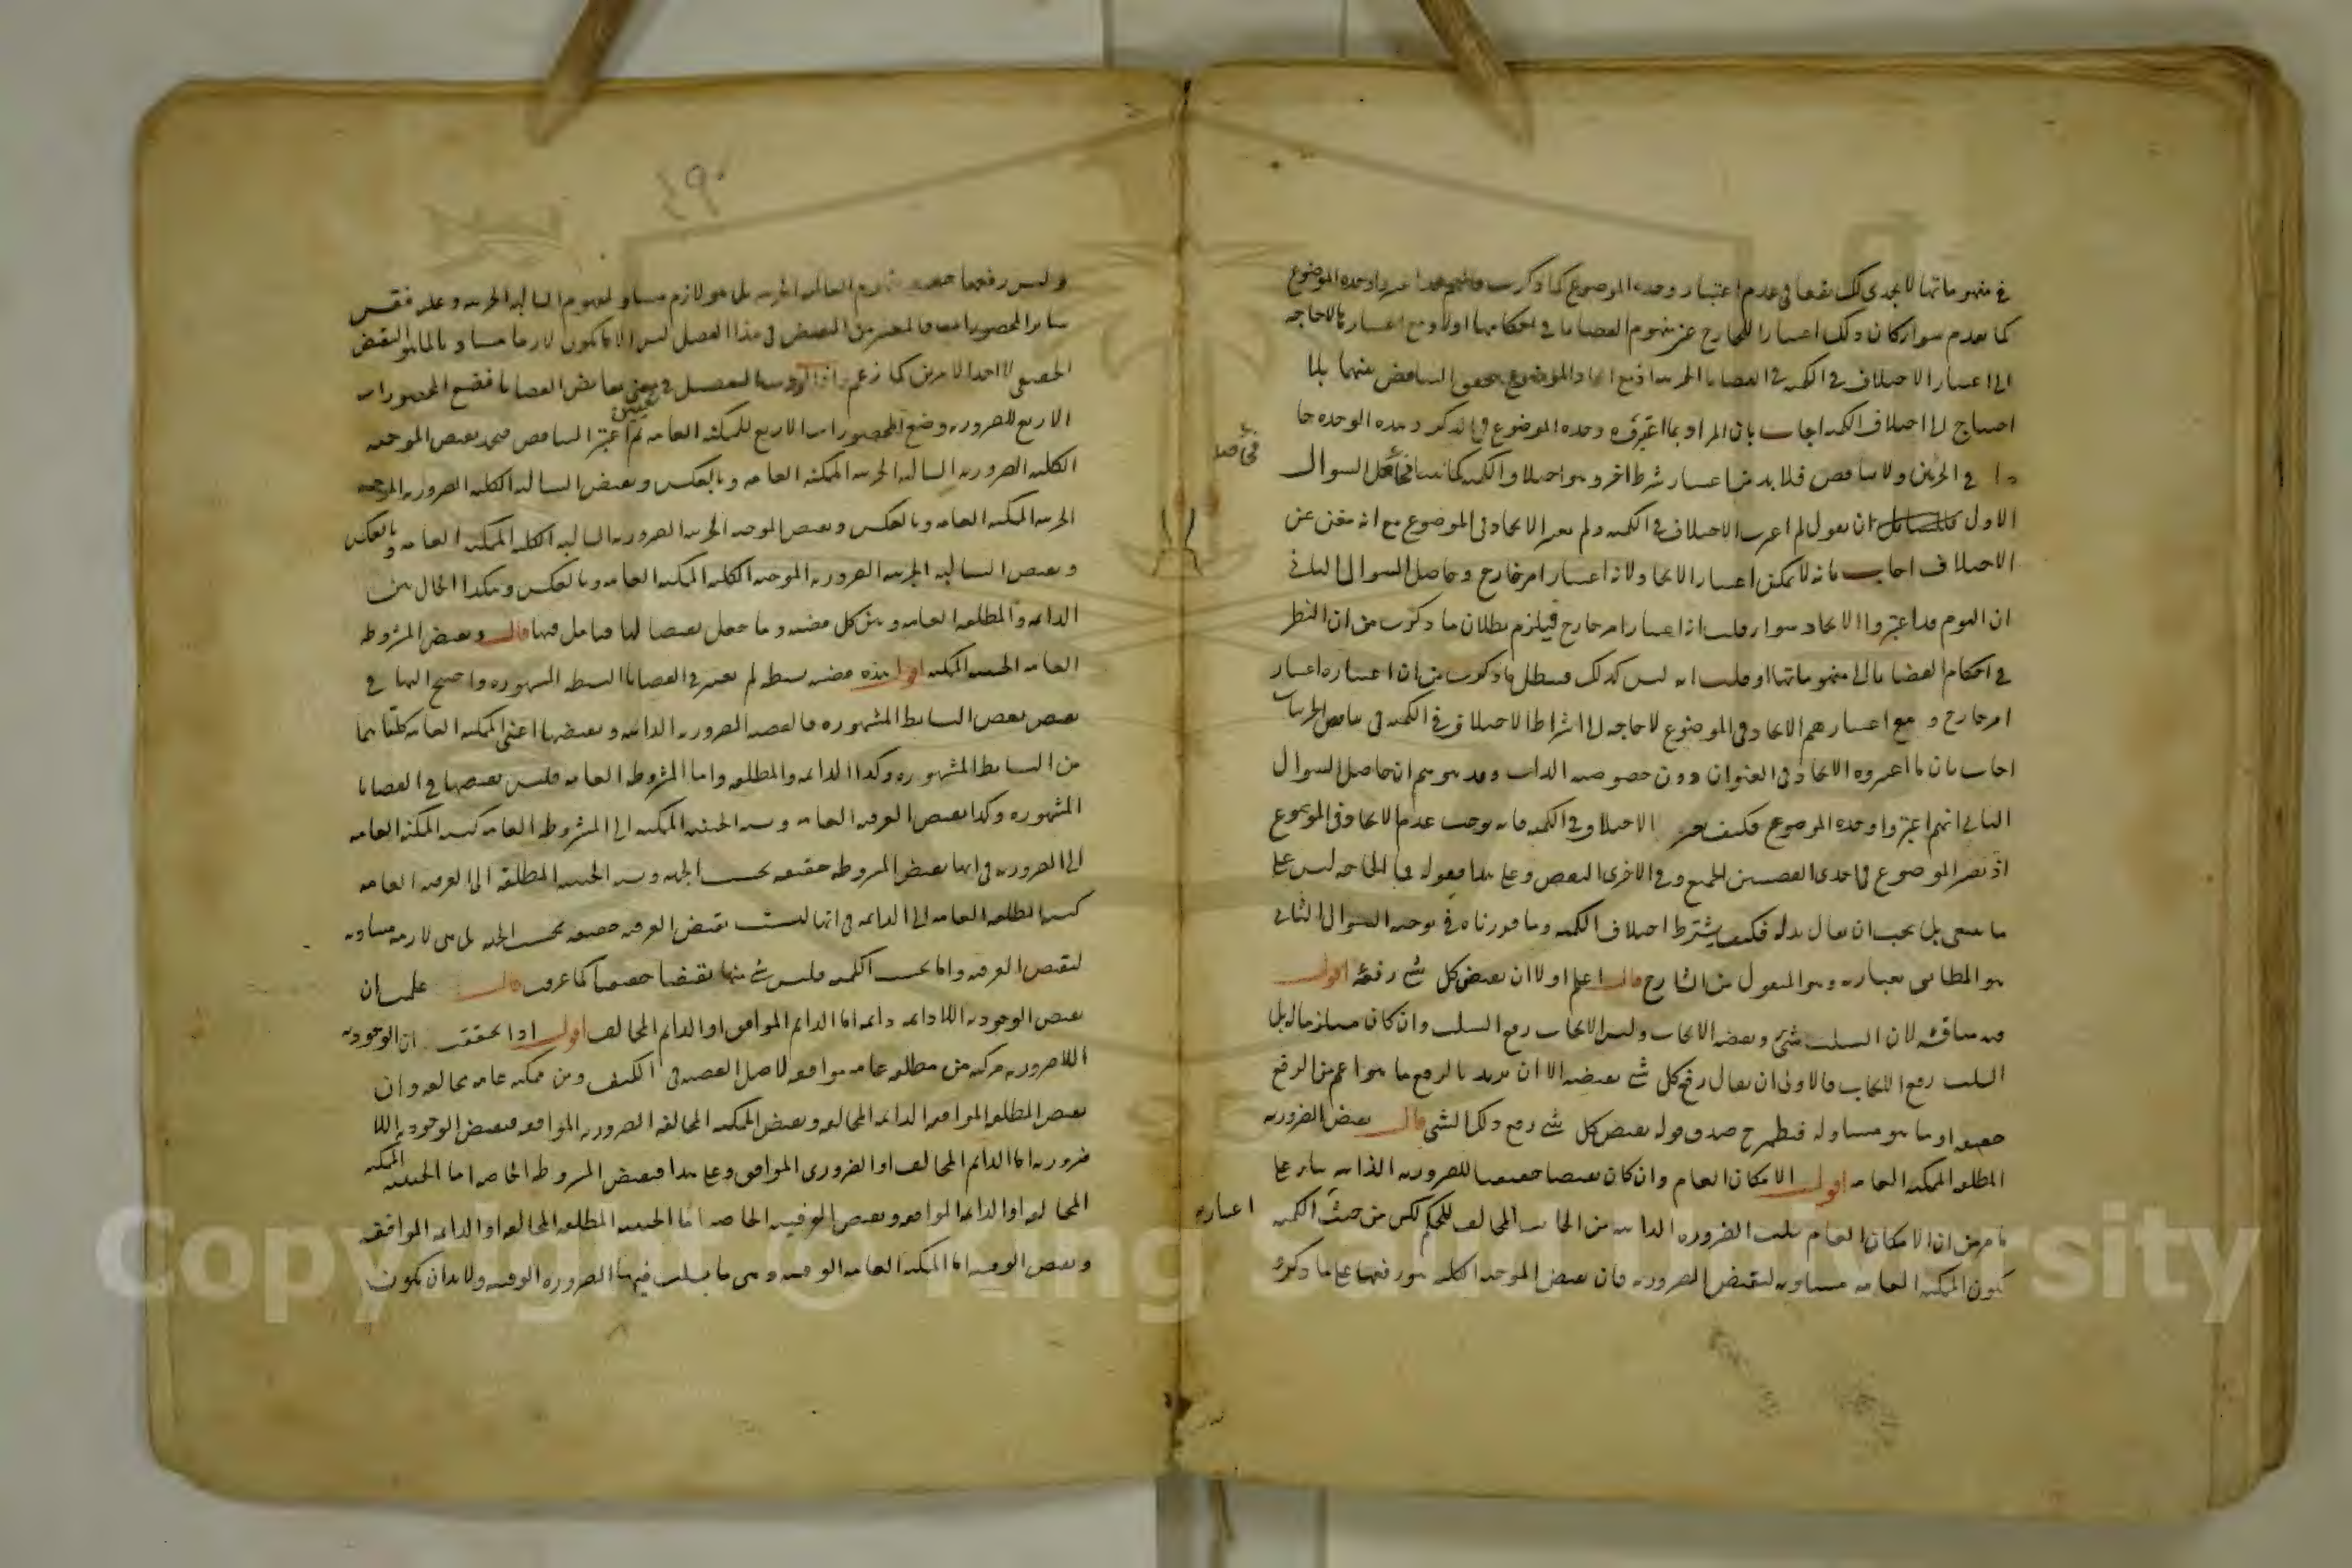 في مفهوماتها لا يجدى لك نفعا في عدم اعتبار وحدة الموضوع كما ذكرت فانهم قد اعتبروا وحدة الموضوع
كما تقدم سواء كان ذلك اعتبارا للخارج عن مفهوم القضايا في احكامها اولا ومع اعتبارها لا حاجة
الى اعتبار الاختلاف في الكمية في القضايا الجزئية اذ مع اتحاد الموضوع يتحقق التناقض بينهما بلا
احتياج الى اختلاف الكمية اجاب بان المراد بما اعتبروه وحدة الموضوع في الذكر وهذه الوحدة حا
في الجزئيتين ولا تناقض فلا بد من اعتبار شرط اخر وهو اختلاف الكمية كما بينا فحاصل السوال
الاول ان يقول لم اعتبرت الاختلاف في الكمية ولم تعتبر الاتحاد في الموضوع مع انه مغن عن
الاختلاف اجاب بانه لا يمكن اعتبار الاتحاد لانه اعتبار امر خارج وحاصل السوال الثاني
ان القوم قد اعتبروا الاتحاد سواء قلت انه اعتبار امر خارج فيلزم بطلان ما ذكرت من ان النظر
في احكام القضايا الى مفهوماتها او قلت انه ليس كذلك فبطل ما ذكرت من ان اعتباره اعتبار
امر خارج و مع اعتبارهم الاتحاد في الموضوع لا حاجة الى اشتراط الاختلاف في الكمية في تناقض الجزئيات
اجاب بان ما اعتبروه الاتحاد في العنوان دون خصوصية الذات وقد يتوهم ان حاصل السوال
الثاني انهم اعتبروا وحدة الموضوع فكيف يعتبر الاختلاف في الكمية فانه يوجب عدم الاتحاد في الموضوع
اذ يصير الموضوع في احدى القضيتين الجميع وفي الاخرى البعض وعلى هذا فقوله فما الحاجة ليس على
ما ينبغي بل يجب ان يقال بدله فكيف يشترط اختلاف الكمية وما قررناه في توجيه السوال الثاني
هو المطابق بعبارته وهو المنقول من الشارح قال اعلم اولا ان نقيض كل شئ رفعه اقول
فيه مناقشة لان السلب شئ ونقيضه الايجاب وليس الايجاب رفع السلب وان كان مستلزما له بل
السلب رفع الايجاب فالاولى ان يقال رفع كل شئ نقيضه الا ان يريد بالرفع ما هو اعم من الرفع
حقيقة او ما هو مساو له فيظهر ح صدق قوله نقيض كل شئ رفع ذلك الشئ قال نقيض الضرورية
المطلقة الممكنة العامة اقول الامكان العام وان كان نقيضا حقيقيا للضرورية الذاتية بناء على
ما مر من ان الامكان العام سلب الضرورة الذاتية من الجانب المخالف للحكم لكن من حيث الكمية
اعتباره
تكون الممكنة العامة مساوية لنقيض الضرورية فان نقيض الموجبة الكلية هو رفعها على ما ذكره
٤٩٠
وليس رفعها مفهوم السالبة الجزئية بل هو لازم مساو لمفهوم السالبة الجزئية وعليه فقس
سائر المحصورات فالمعتبر من النقيض في هذا الفصل ليس الا ما يكون لازما مساويا لما هو النقيض
الحقيقي لا احد الامرين كما زعم واذا اردت التفصيل في تعيين نقائض القضايا فضع المحصورات
الاربع للضرورية وضع المحصورات الاربع للممكنة العامة ثم اعتبر التناقض فتجد نقيض الموجبة
الكلية الضرورية السالبة الجزئية الممكنة العامة وبالعكس ونقيض السالبة الكلية الضرورية الموجبة
الجزئية الممكنة العامة وبالعكس ونقيض الموجبة الجزئية الضرورية السالبة الكلية الممكنة العامة وبالعكس
ونقيض السالبة الجزئية الضرورية الموجبة الكلية الممكنة العامة وبالعكس وهكذا الحال بين
الدائمة والمطلقة العامة وبين كل قضية وما جعل نقيضا لها فتامل فيها قال ونقيض المشروطة
العامة الحينية الممكنة اقول هذه قضية بسيطة لم تعتبر في القضايا البسيطة المشهورة واحتيج اليها في
نقيض بعض البسائط المشهورة فالقضية الضرورية الذاتية ونقيضها اعني الممكنة العامة كلتاهما
من البسائط المشهورة وكذا الدائمة والمطلقة واما المشروطة العامة فليس نقيضها في القضايا
المشهورة وكذا نقيض العرفية العامة ونسبة الحينية الممكنة الى المشروطة العامة كنسبة الممكنة العامة
الى الضرورية في انها نقيض المشروطة حقيقة بحسب الجهة ونسبة الحينية المطلقة الى العرفية العامة
كنسبة المطلقة العامة الى الدائمة في انها ليست نقيض العرفية حقيقة بحسب الجهة بل هي لازمة مساوية
لنقيض العرفية واما بحسب الكمية فليس شئ منها نقيضا حقيقيا كما عرفت قال علمت ان
نقيض الوجودية اللادائمة دائمة اما الدائم الموافق او الدائم المخالف اقول اذا تحققت ان الوجودية
اللاضرورية مركبة من مطلقة عامة موافقة لاصل القضية في الكيف ومن ممكنة عامة مخالفة وان
نقيض المطلقة الموافقة الدائمة المخالفة ونقيض الممكنة المخالفة الضرورية الموافقة فنقيض الوجودية اللا
ضرورية اما الدائم المخالف او الضروري الموافق وعلى هذا فنقيض المشروطة الخاصة اما الحينية الممكنة
المخالفة او الدائمة الموافقة ونقيض العرفية الخاصة اما الحينية المطلقة المخالفة او الدائمة الموافقة
ونقيض الوقتية اما الممكنة العامة الوقتية وهي ما يسلب فيها الضرورة الوقتية ولا بد ان يكون